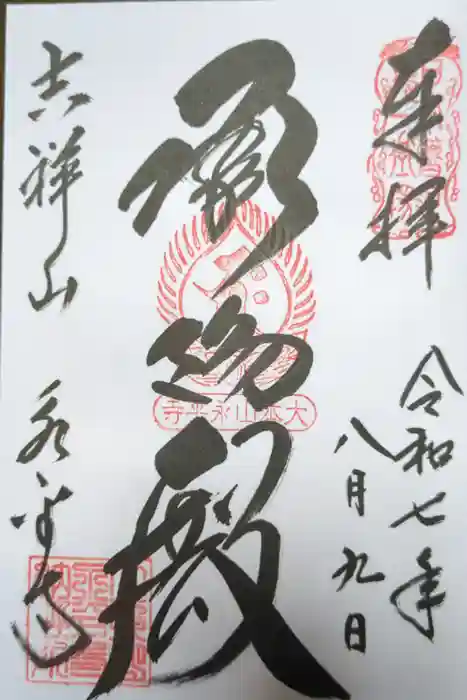 奉拝
令和七年
八月九日
承陽殿
大本山永平寺
吉祥山 永平寺